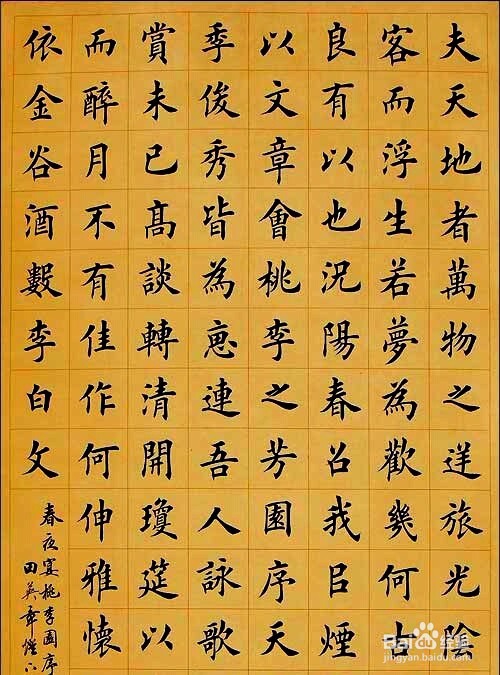 夫天地者萬物之逆旅光陰
客而浮生若夢為歡幾何古
良有以也況陽春召我㠯煙
以文章會桃李之芳園序天
季俊秀皆為惠連吾人詠歌
賞未已高談轉清開瓊筵以
而醉月不有佳作何伸雅懷
依金谷酒數李白文
春夜宴桃李園序
田英章
Baidu经验
jingyan.baidu.com